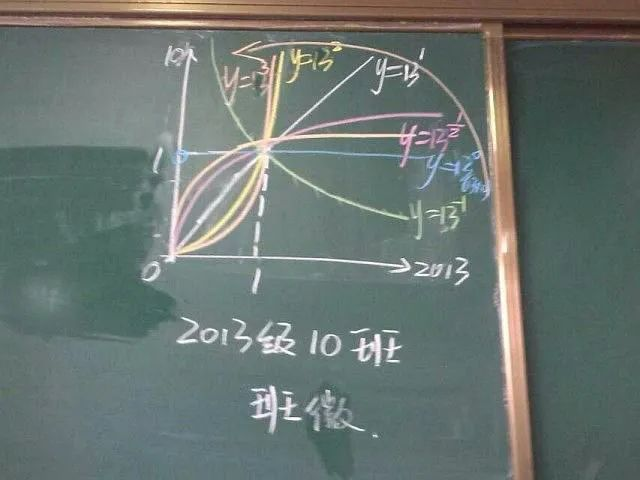 10
y=13³
y=13²
y=13¹
y=13^½
1
y=13⁰
y=13⁻¹
0
1
2013
2013级10班
班徽